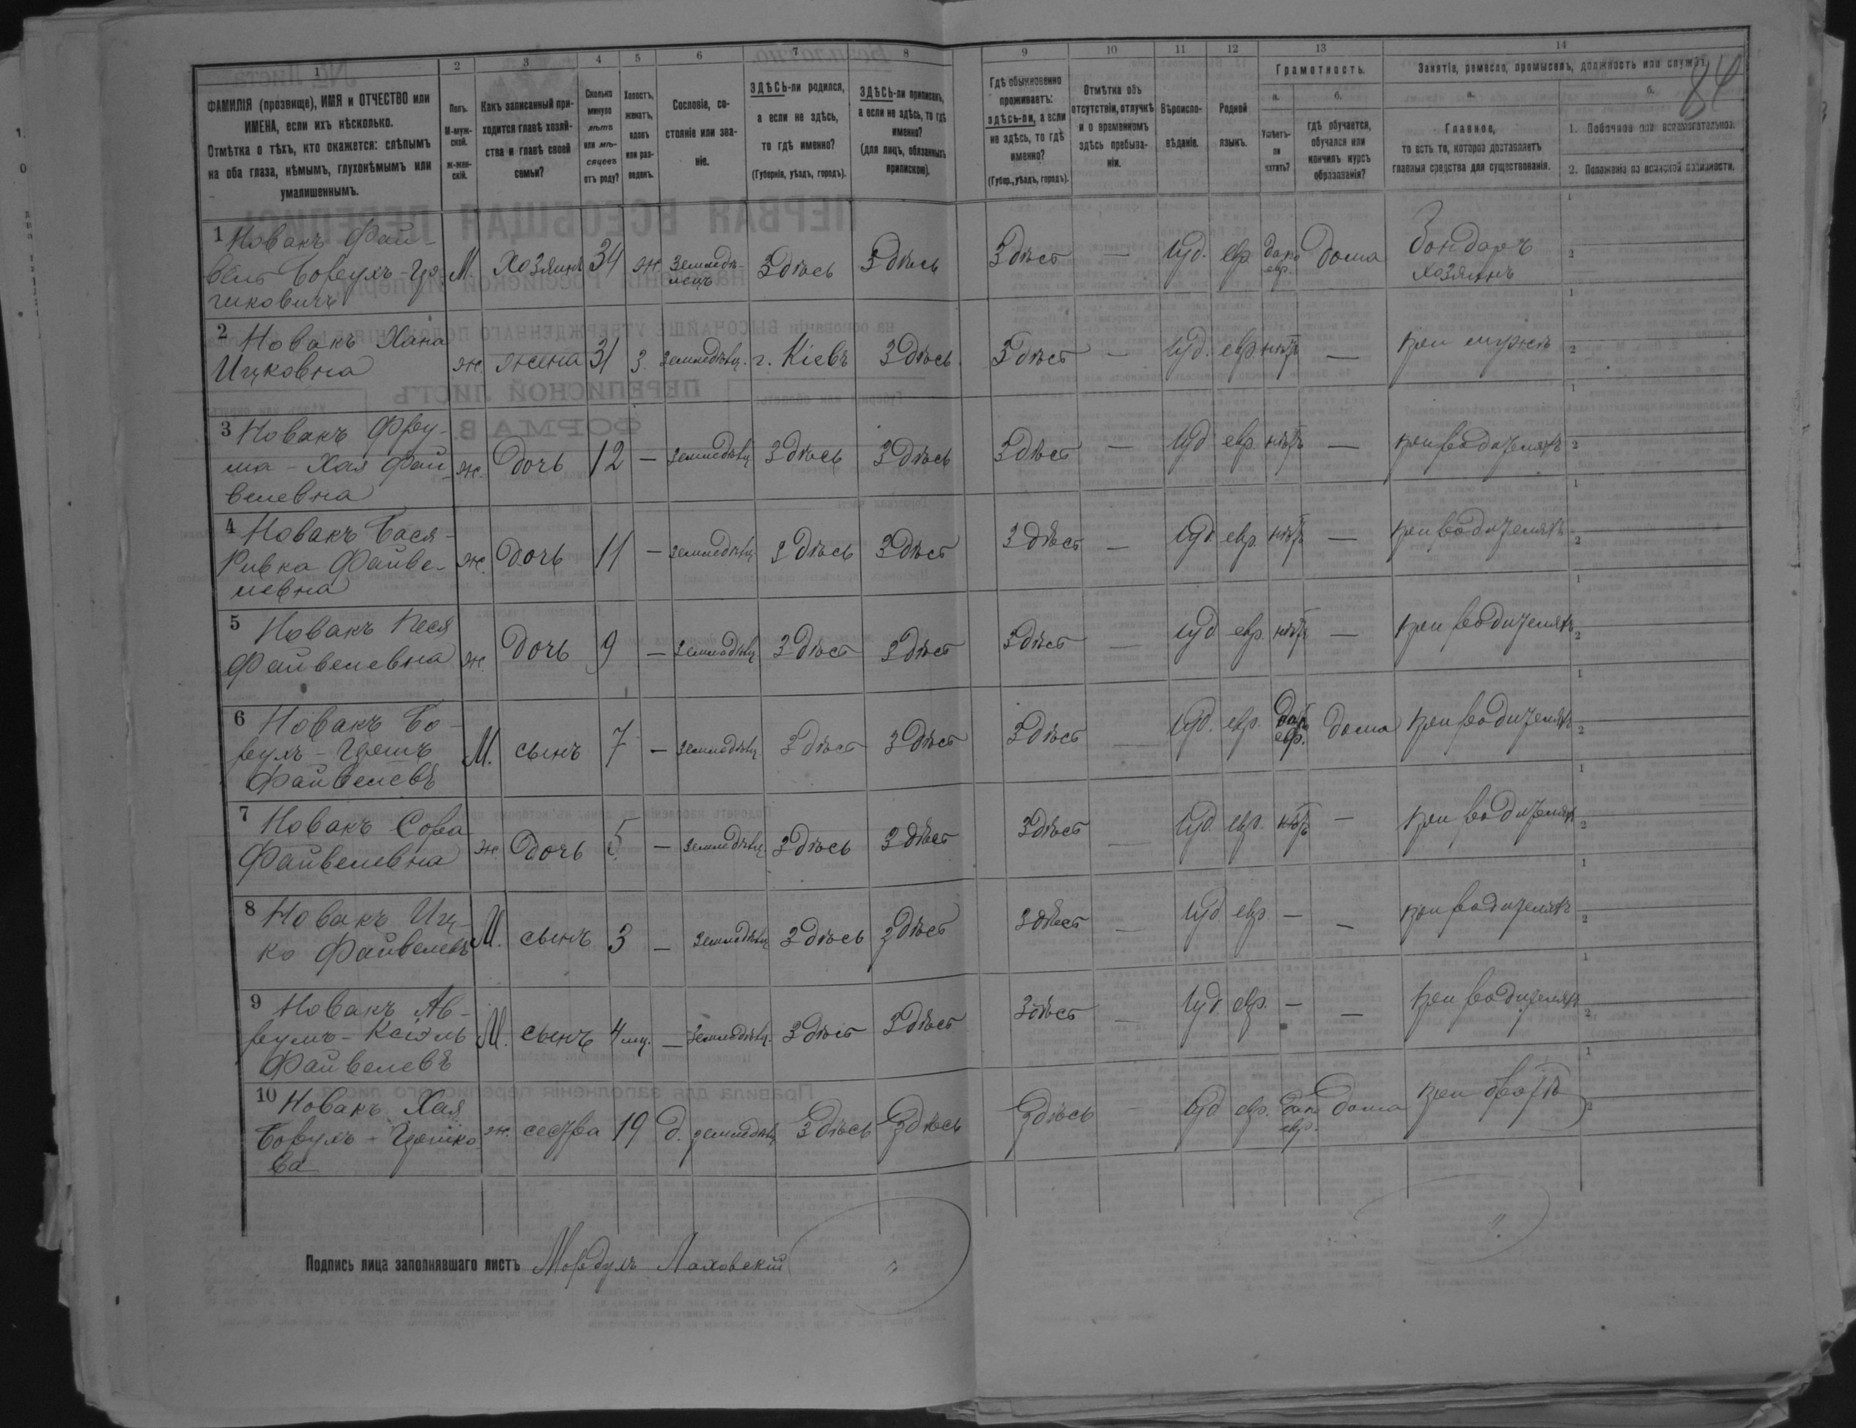 84
1 2 3 4 5 6 7 8 9 10 11 12 13 14
ФАМИЛІЯ (прозвище), ИМЯ и ОТЧЕСТВО или ИМЕНА, если ихъ нѣсколько.
Отмѣтка о тѣхъ, кто окажется: слѣпымъ на оба глаза, нѣмымъ, глухонѣмымъ или умалишеннымъ.
Полъ. М-муж-ской. ж-жен-скій.
Какъ записанный при-ходится главѣ хозяй-ства и главѣ своей семьи?
Сколько минуло лѣтъ или мѣ-сяцевъ отъ роду?
Холостъ, женатъ, вдовъ или раз-веденъ.
Сословіе, со-стояніе или зва-ніе.
ЗДѢСЬ-ли родился, а если не здѣсь, то гдѣ именно? (Губернія, уѣздъ, городъ).
ЗДѢСЬ-ли приписанъ, а если не здѣсь, то гдѣ именно? (для лицъ, обязанныхъ припиской).
Гдѣ обыкновенно проживаетъ: здѣсь-ли, а если не здѣсь, то гдѣ именно? (Губер., уѣздъ, городъ).
Отмѣтка объ отсутствіи, отлучкѣ и о временномъ здѣсь пребыва-ніи.
Вѣроиспо-вѣданіе.
Родной языкъ.
Грамотность.
а. Умѣетъ-ли читать?
б. гдѣ обучается, обучался или кончилъ курсъ образованія?
Занятіе, ремесло, промыселъ, должность или служба.
а. Главное, то есть то, которое доставляетъ главныя средства для существованія.
б. 1. Побочное или вспомогательное.
2. Положеніе по воинской повинности.
1 Новакъ Фай-
вель Боруxъ-Цо-
диковичъ М. хозяинъ 34 ж. земледѣ-
лецъ Здѣсь Здѣсь Здѣсь — Іуд. евр. да по евр. дома Бондарь
хозяинъ
2 Новакъ Хана
Ицковна ж. жена 31 з. земледѣлц. г. Кіевъ Здѣсь Здѣсь — Іуд. евр нѣтъ — при мужѣ
3 Новакъ Фру-
ма - Хая Фай
велевна ж. дочь 12 — земледѣлц Здѣсь Здѣсь Здѣсь — Іуд евр нѣтъ — при родителяхъ
4 Новакъ Бася-
Ривка Файве-
левна ж. дочь 11 — земледѣлц Здѣсь Здѣсь Здѣсь — Іуд евр. нѣтъ — при родителяхъ
5 Новакъ Песя
Файвелевна ж. дочь 9 — земледѣлц Здѣсь Здѣсь Здѣсь — Іуд евр. нѣтъ — при родителяхъ
6 Новакъ Бо-
рухъ -
Файвелевъ М. сынъ 7 — земледѣлц Здѣсь Здѣсь Здѣсь — Іуд. евр. да по евр. дома при родителяхъ
7 Новакъ Сора
Файвелевна ж дочь 5 — земледѣлц Здѣсь Здѣсь Здѣсь — Іуд. евр. нѣтъ — при родителяхъ
8 Новакъ Иц-
ко Файвелевъ М. сынъ 3 — земледѣлц Здѣсь Здѣсь Здѣсь — Іуд евр — — при родителяхъ
9 Новакъ Ав-
румъ-
Файвелевъ М. сынъ 4 мц. — земледѣлц. Здѣсь Здѣсь Здѣсь — Іуд евр. — — при родителяхъ
10 Новакъ Хая
Борухъ -
ва ж. сестра 19 д. земледѣлц Здѣсь Здѣсь Здѣсь — Іуд евр. да по евр. дома при братѣ
Подпись лица заполнявшаго листъ Мордухъ Лаховскій